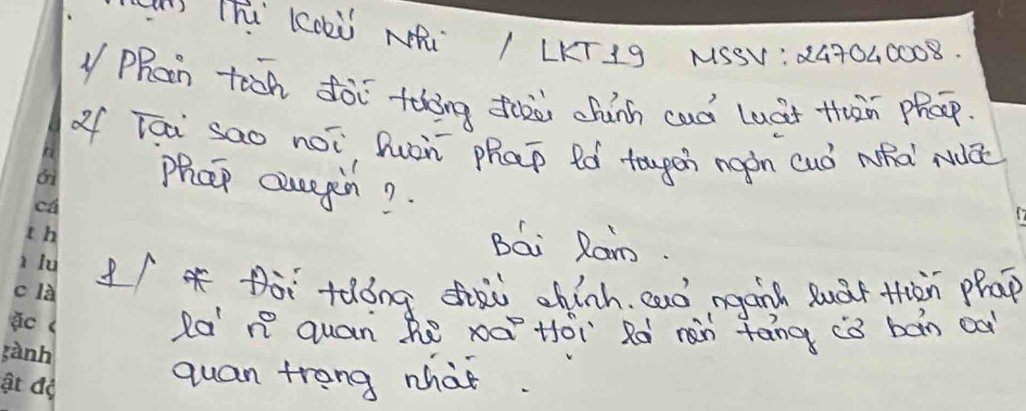 Thị Kiều Nhi / LKT19 MSSV: 247040008.
1/ Phân tích đối tượng điều chỉnh của luật Hiến pháp.
2/ Tại sao nói hiến pháp là tuyên ngôn của Nhà Nước
pháp quyền?.
Bài làm.
1/ * Đối tượng điều chỉnh của ngành luật Hiến pháp
là quan hệ xã hội là nền tảng cơ bản và
quan trọng nhất.
ới
cá
t h
lu
c là
ặc
gành
ật độ